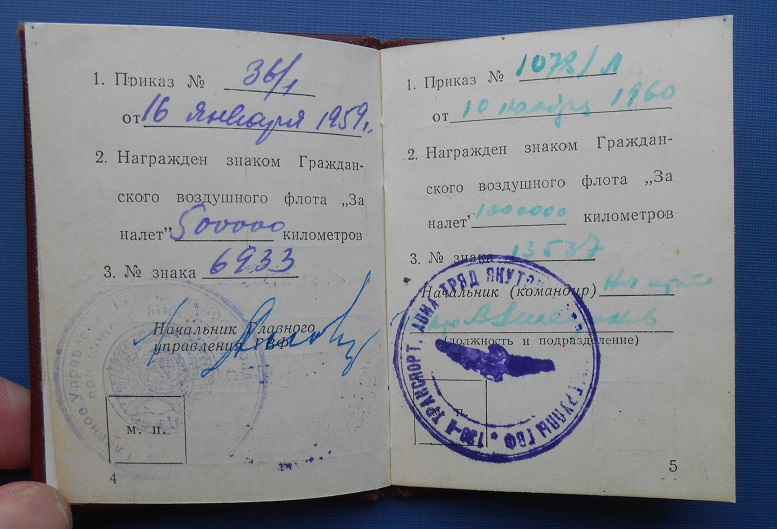 1. Приказ № 36/1
от 16 января 1959г.
2. Награжден знаком Граждан-
ского воздушного флота „За
налет" 500000 километров
3. № знака 6933
Начальник Главного
управления ГВФ
м. п.
4
1. Приказ № 1078/л
от 10 ноября 1960
2. Награжден знаком Граждан-
ского воздушного флота „За
налет" 1000000 километров
3. № знака 13537
Начальник (командир)
(должность и подразделение)
ТРАНСПОРТ. АВИА ТРЯД ЯКУТ
ГРУППЫ ГВФ
5